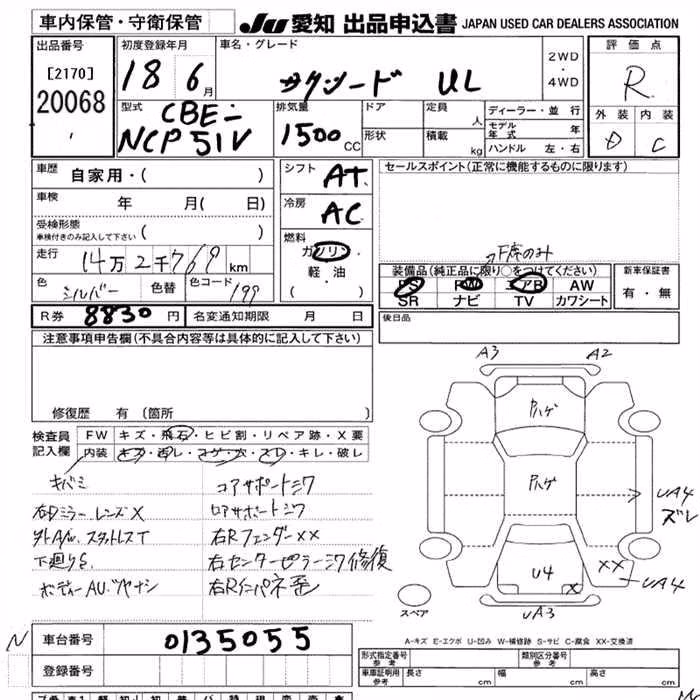 車内保管・守衛保管
JU 愛知 出品申込書 JAPAN USED CAR DEALERS ASSOCIATION
出品番号
[2170]
20068
初度登録年月
18年 6月
車名・グレード
サクシード UL
2WD
・
4WD
評価点
R
外装 内装
D C
型式
CBE-
NCP51V
排気量
1500 CC
ドア
形状
定員 人
積載 kg
ディーラー・並行
モデル年式 年
ハンドル 左・右
車歴
自家用・( )
車検
年 月( 日)
受検形態
車検付きのみ記入して下さい ( )
走行
14万2千769 km
色
シルバー
色替
色コード
199
シフト
AT
冷房
AC
燃料
ガソリン
軽・油
( )
セールスポイント(正常に機能するものに限ります)
F席のみ
装備品(純正品に限り○をつけてください)
PS PW エアB AW
SR ナビ TV カワシート
新車保証書
有・無
後日品
R券 8830 円
名変通知期限 月 日
注意事項申告欄(不具合内容等は具体的に記入して下さい)
修復歴 有(箇所
検査員
記入欄
FW キズ・飛石・ヒビ割・リペア跡・X要
内装 キズ・汚レ・コゲ・穴・スレ・キレ・破レ
キバミ
右Dミラーレンズ X
外A/W. スタットレスT
下廻りS.
ボディーAU.ツヤナシ
コアサポートミワ
ロアサポートミワ
右Rフェンダー XX
右センターピラーミワ修復
右Rインパネ歪
A3
A2
Pハゲ
Pハゲ
UA4
ズレ
U4
X
XX
UA4
UA3
スペア
A-キズ E-エクボ U-凹み W-補修跡 S-サビ C-腐食 XX-交換済
N
車台番号 0135055
登録番号
形式指定番号
参考
類別区分番号
参考
車庫証明用
参考
長さ cm 幅 cm 高さ cm